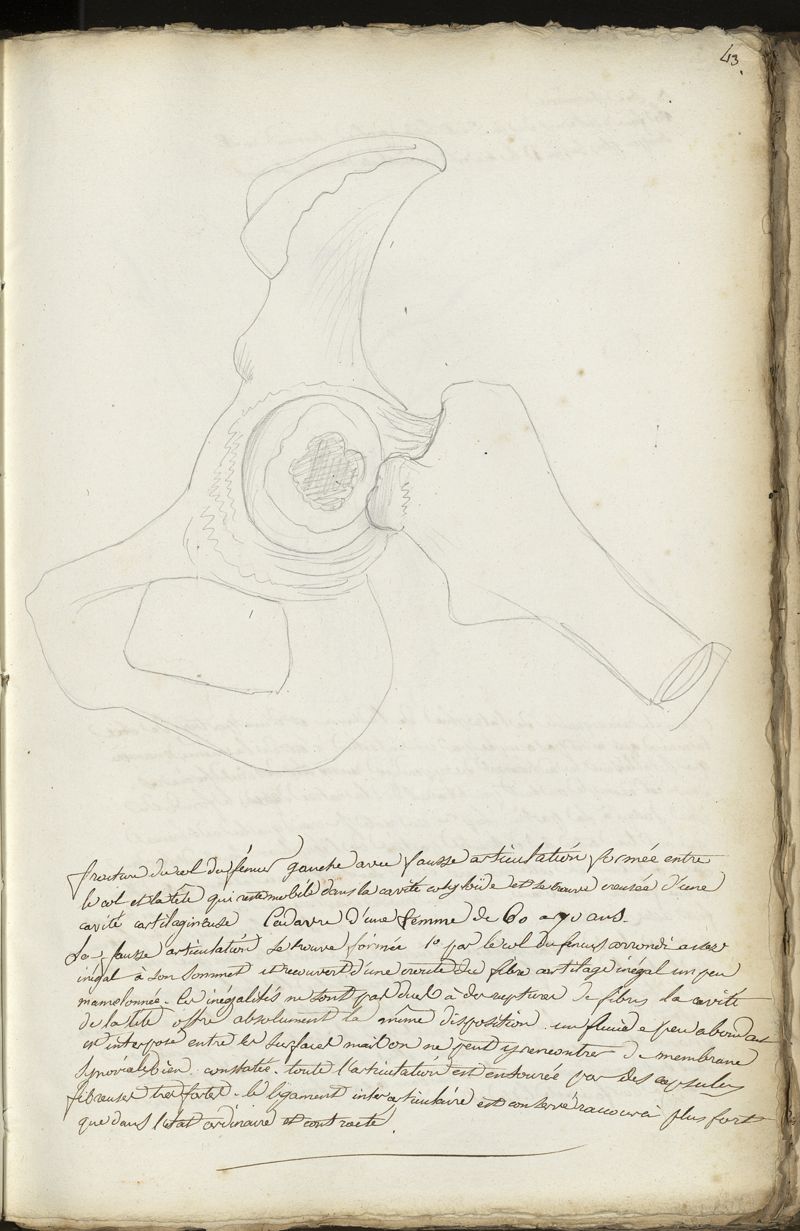 43.
fracture du col du fémur gauche avec fausse articulation formée entre
le col et la tête qui reste mobile dans la cavité cotyloïde et se trouve creusée d'une
cavité cartilagineuse Cadavre d'une femme de 60 a 70 ans.
La fausse articulation se trouve formée 1º par le col du femur arrondi assez
inégal à son sommet et recouvert d'une croute de fibro cartilage inégal un peu
mamelonnée. les inégalités ne sont pas dues à des ruptures de fibres la cavité
de la tête offre absolument la même disposition. un fluide peu abondant
est interposé entre les surfaces mais on ne peut y rencontrer de membrane
synoviale bien constatée. toute l'articulation est entourée par des capsules
fibreuses tres fortes. le ligament inter articulaire est conservé raccourci plus fort
que dans l'état ordinaire et contracté.